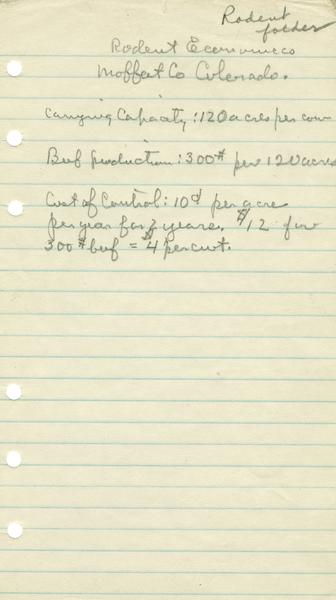 Rodent
folder
Rodent Economics
Moffat Co Colorado.
Carrying Capacity: 120 acres per cow
Beef production: 300# per 120 acres
Cost of Control: 10¢ per acre
per year for years. $12 for
300# beef = $4 per cwt.